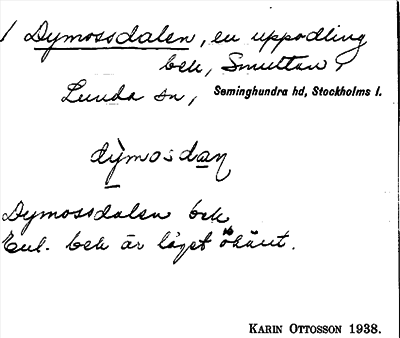 / Dymossdalen, en uppodling
bek, Smultan i
Lunda sn, Seminghundra hd, Stockholms l.
dỳmosdaṉ
Dymossdalen bek
Enl. bek är läget okänt.
KARIN OTTOSSON 1938.